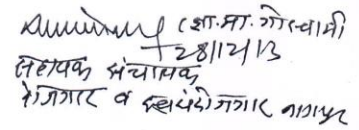 (ज्ञा.मा. गोस्वामी)
28/12/13
सहायक संचालक
रोजगार व स्वयंरोजगार नागपूर